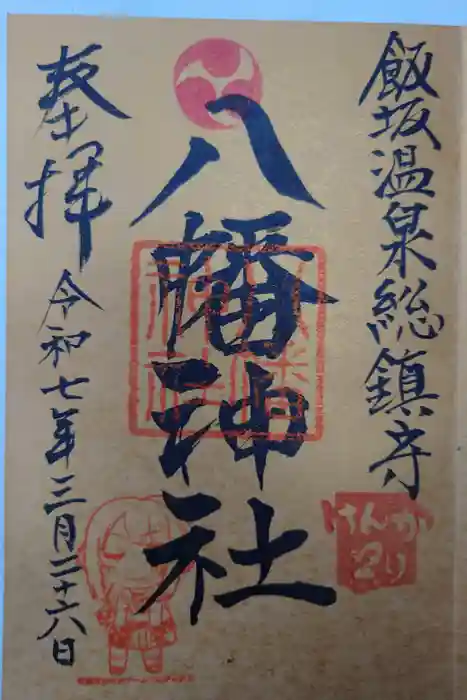 飯坂温泉総鎮守
八幡神社
奉拝
令和七年三月二十六日
八幡
神社
けんか
祭り